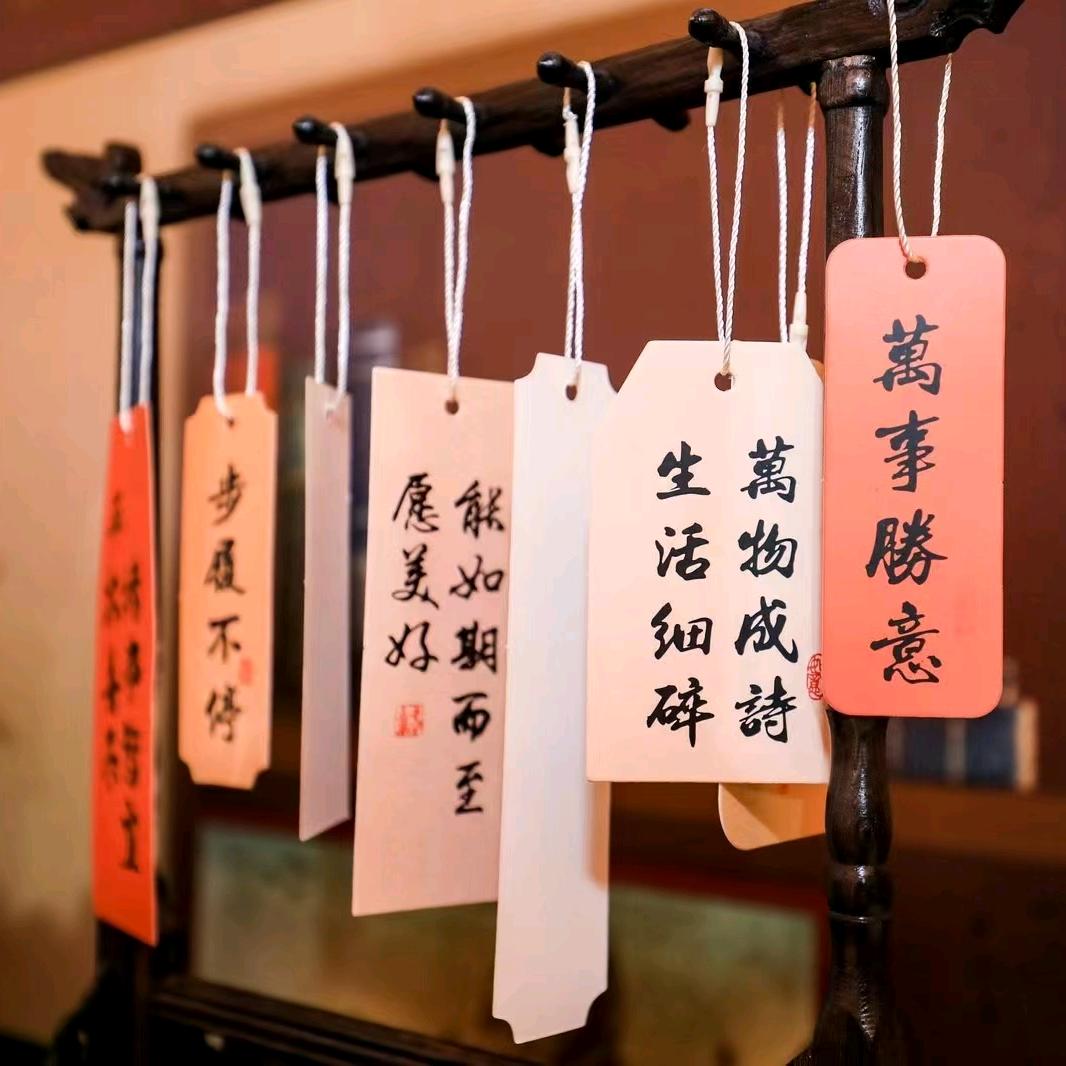 萬事勝意
萬物成詩
生活细碎
能如期而至
愿美好
步履不停